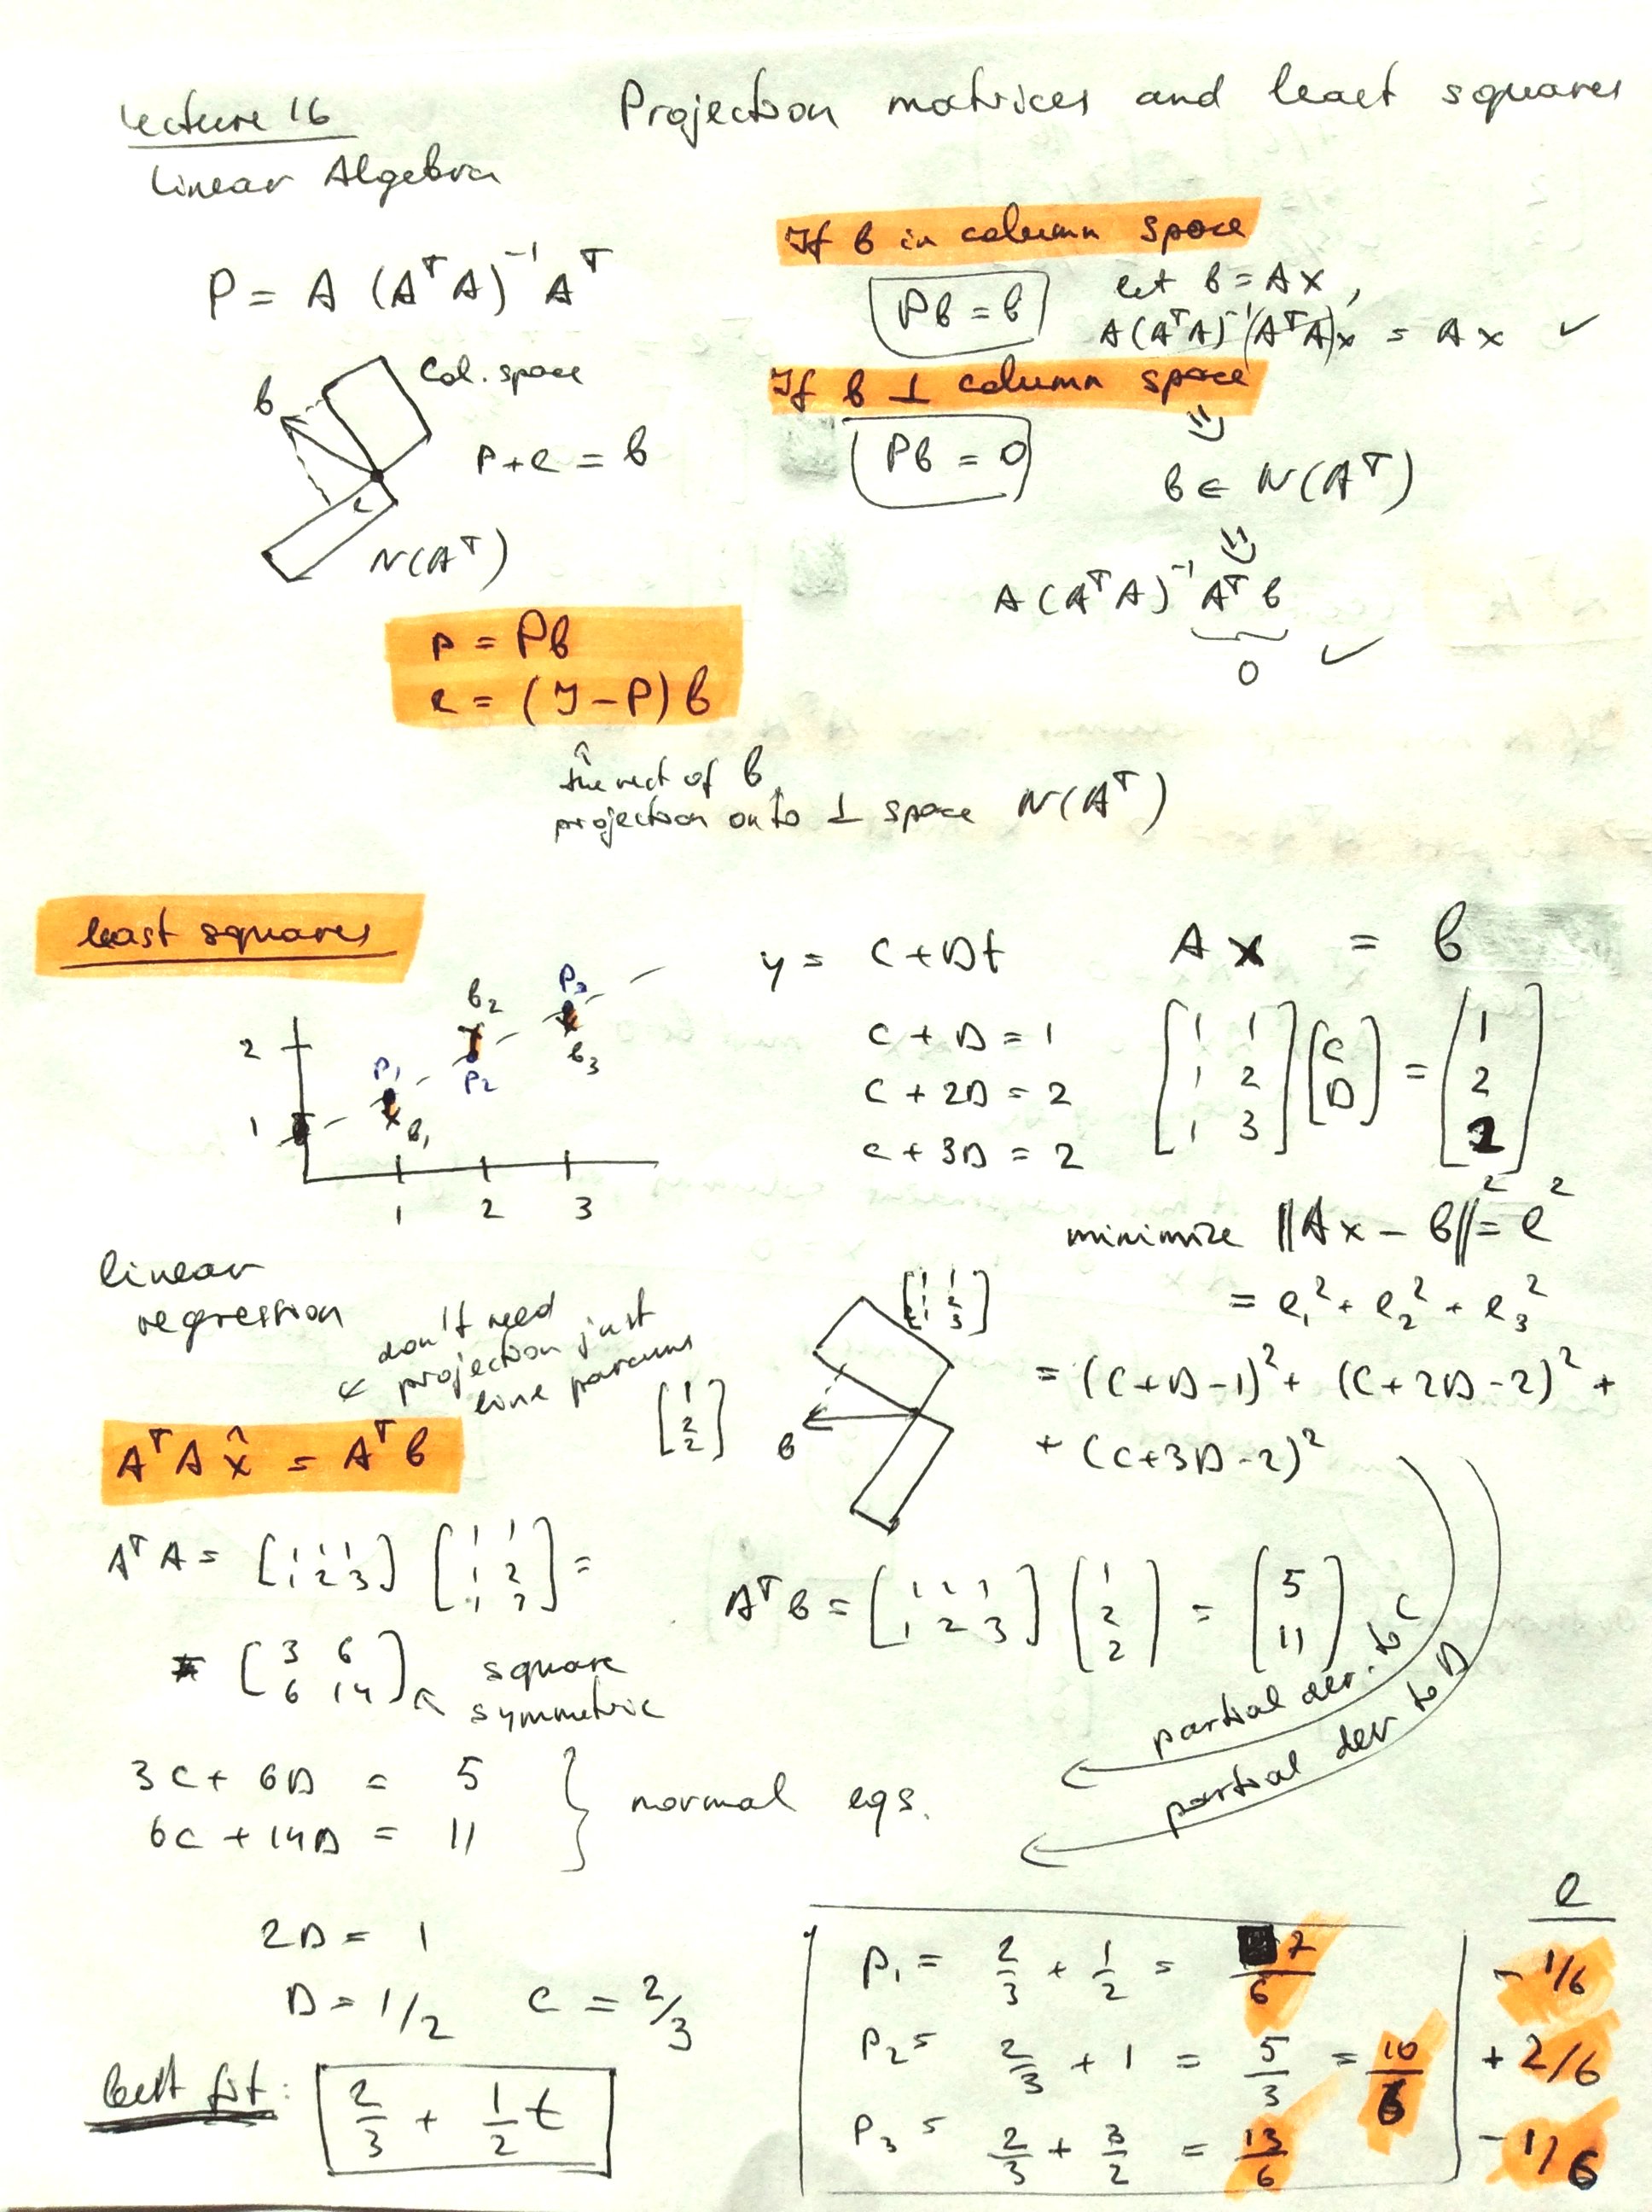 Lecture 16
Projection matrices and least squares
Linear Algebra
P = A (AᵀA)⁻¹ Aᵀ
b
Col. space
p + e = b
e
N(Aᵀ)
If b in column space
Pb = b
let b = Ax,
A(AᵀA)⁻¹(AᵀA)x = Ax ✓
If b ⊥ column space
Pb = 0
b ∈ N(Aᵀ)
A(AᵀA)⁻¹ Aᵀb
0 ✓
p = Pb
e = (I - P) b
the rest of b,
projection onto ⊥ space N(Aᵀ)
least squares
2
1
P₁
b₁
b₂
P₂
P₃
b₃
1 2 3
y = C + Dt
C + D = 1
C + 2D = 2
C + 3D = 2
A x = b
[1 1
1 2
1 3] [C
D] = [1
2
2]
minimize ||Ax - b||² = e²
= e₁² + e₂² + e₃²
= (C+D-1)² + (C+2D-2)² +
+ (C+3D-2)²
linear
regression
← don't need
projection just
line params
[1 1
1 2
1 3]
[1
2
2]
b
AᵀA x̂ = Aᵀb
AᵀA = [1 1 1
1 2 3] [1 1
1 2
1 3] =
= [3 6
6 14] ↖ square
symmetric
Aᵀb = [1 1 1
1 2 3] [1
2
2] = [5
11]
partial der. to C
partial der to D
3C + 6D = 5
6C + 14D = 11
} normal eqs.
2D = 1
D = 1/2 C = 2/3
best fit: 2/3 + 1/2 t
e
P₁ = 2/3 + 1/2 = 7/6 - 1/6
P₂ = 2/3 + 1 = 5/3 = 10/6 + 2/6
P₃ = 2/3 + 3/2 = 13/6 - 1/6